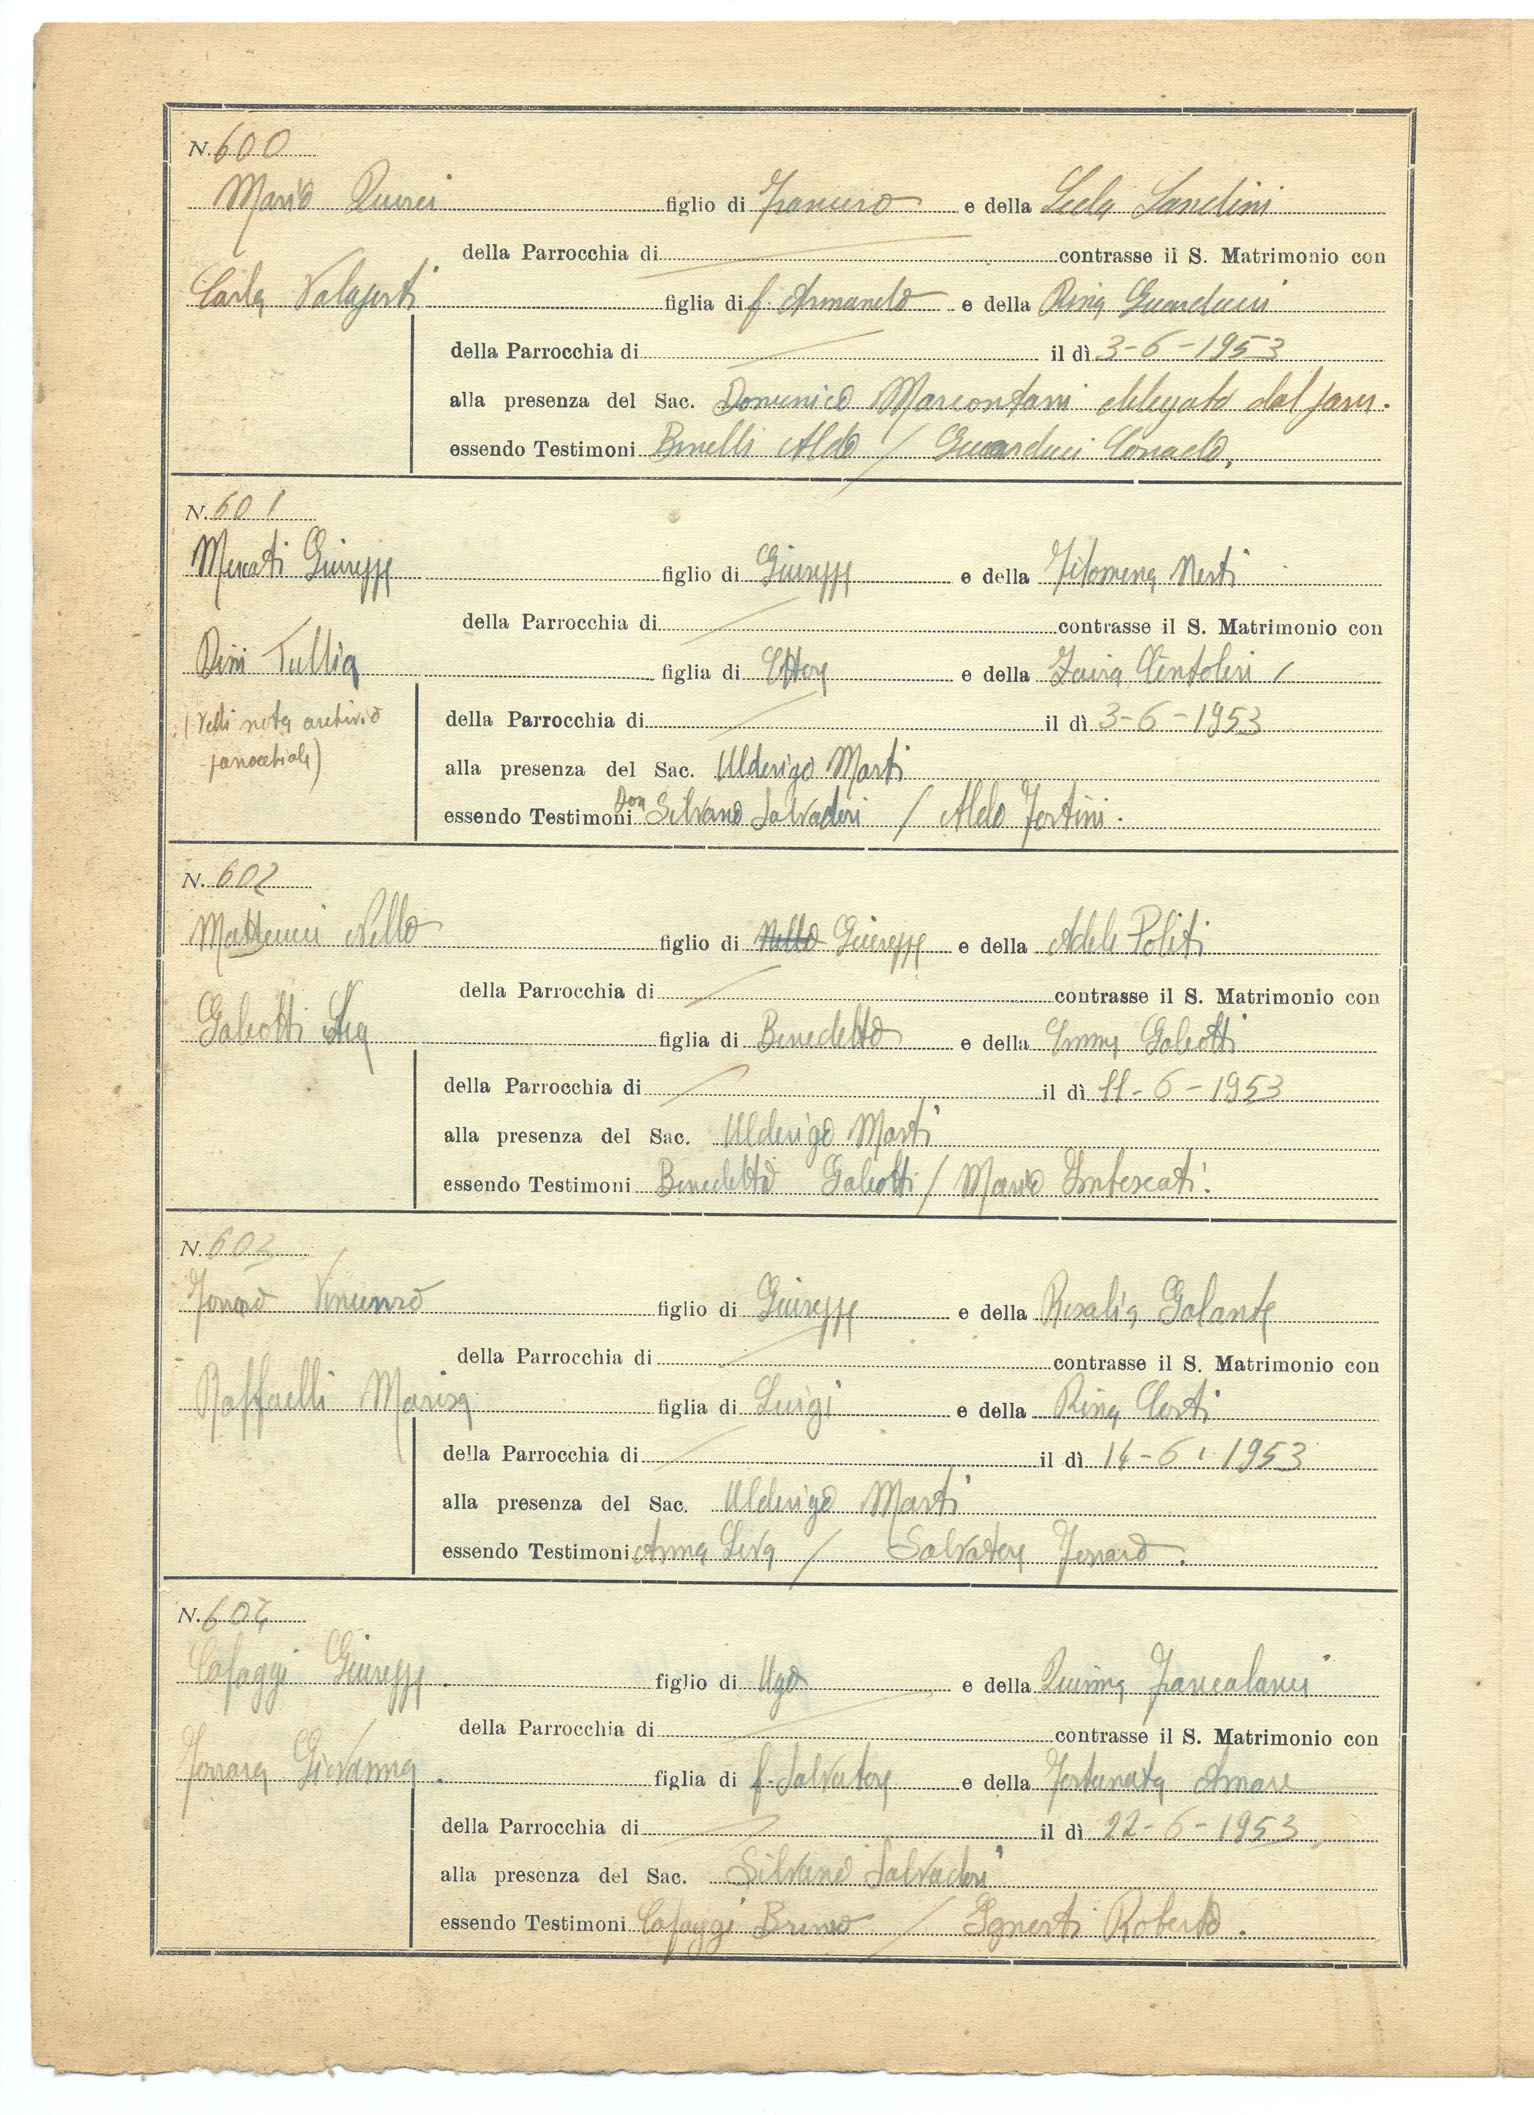 N. 600
Mario Querci figlio di Francesco e della Leda Landini
della Parrocchia di contrasse il S. Matrimonio con
Carla figlia di f. Armando e della Rina Guarducci
della Parrocchia di il dì 3-6-1953
alla presenza del Sac. Domenico Marcontoni delegato dal parr.
essendo Testimoni Binelli Aldo / Guarducci Corrado.
N. 601
Mercati Giuseppe figlio di Giuseppe e della Filomena Nesti
della Parrocchia di contrasse il S. Matrimonio con
Dini Tullia figlia di Ettore e della Zaira
della Parrocchia di il dì 3-6-1953
(Vedi nota archivio
parrocchiale)
alla presenza del Sac. Ulderigo Marti
essendo Testimoni Don Silvano Salvadori / Aldo Fortini.
N. 602
Matteucci Nello figlio di Nello Giuseppe e della Adele Politi
della Parrocchia di contrasse il S. Matrimonio con
Galeotti figlia di Benedetto e della Emma Galeotti
della Parrocchia di il dì 11-6-1953
alla presenza del Sac. Ulderigo Marti
essendo Testimoni Benedetto Galeotti / Mario
N. 603
Vincenzo figlio di Giuseppe e della Rosalia Galante
della Parrocchia di contrasse il S. Matrimonio con
Raffaelli Marisa figlia di Luigi e della Rina Corti
della Parrocchia di il dì 14-6-1953
alla presenza del Sac. Ulderigo Marti
essendo Testimoni Anna / Salvatore
N. 604
Cafaggi Giuseppe. figlio di Ugo e della Francalanci
della Parrocchia di contrasse il S. Matrimonio con
Ferrara Giovanna. figlia di f. Salvatore e della Fortunata Amare
della Parrocchia di il dì 22-6-1953
alla presenza del Sac. Silvano Salvadori
essendo Testimoni Cafaggi Bruno / Ignesti Roberto.